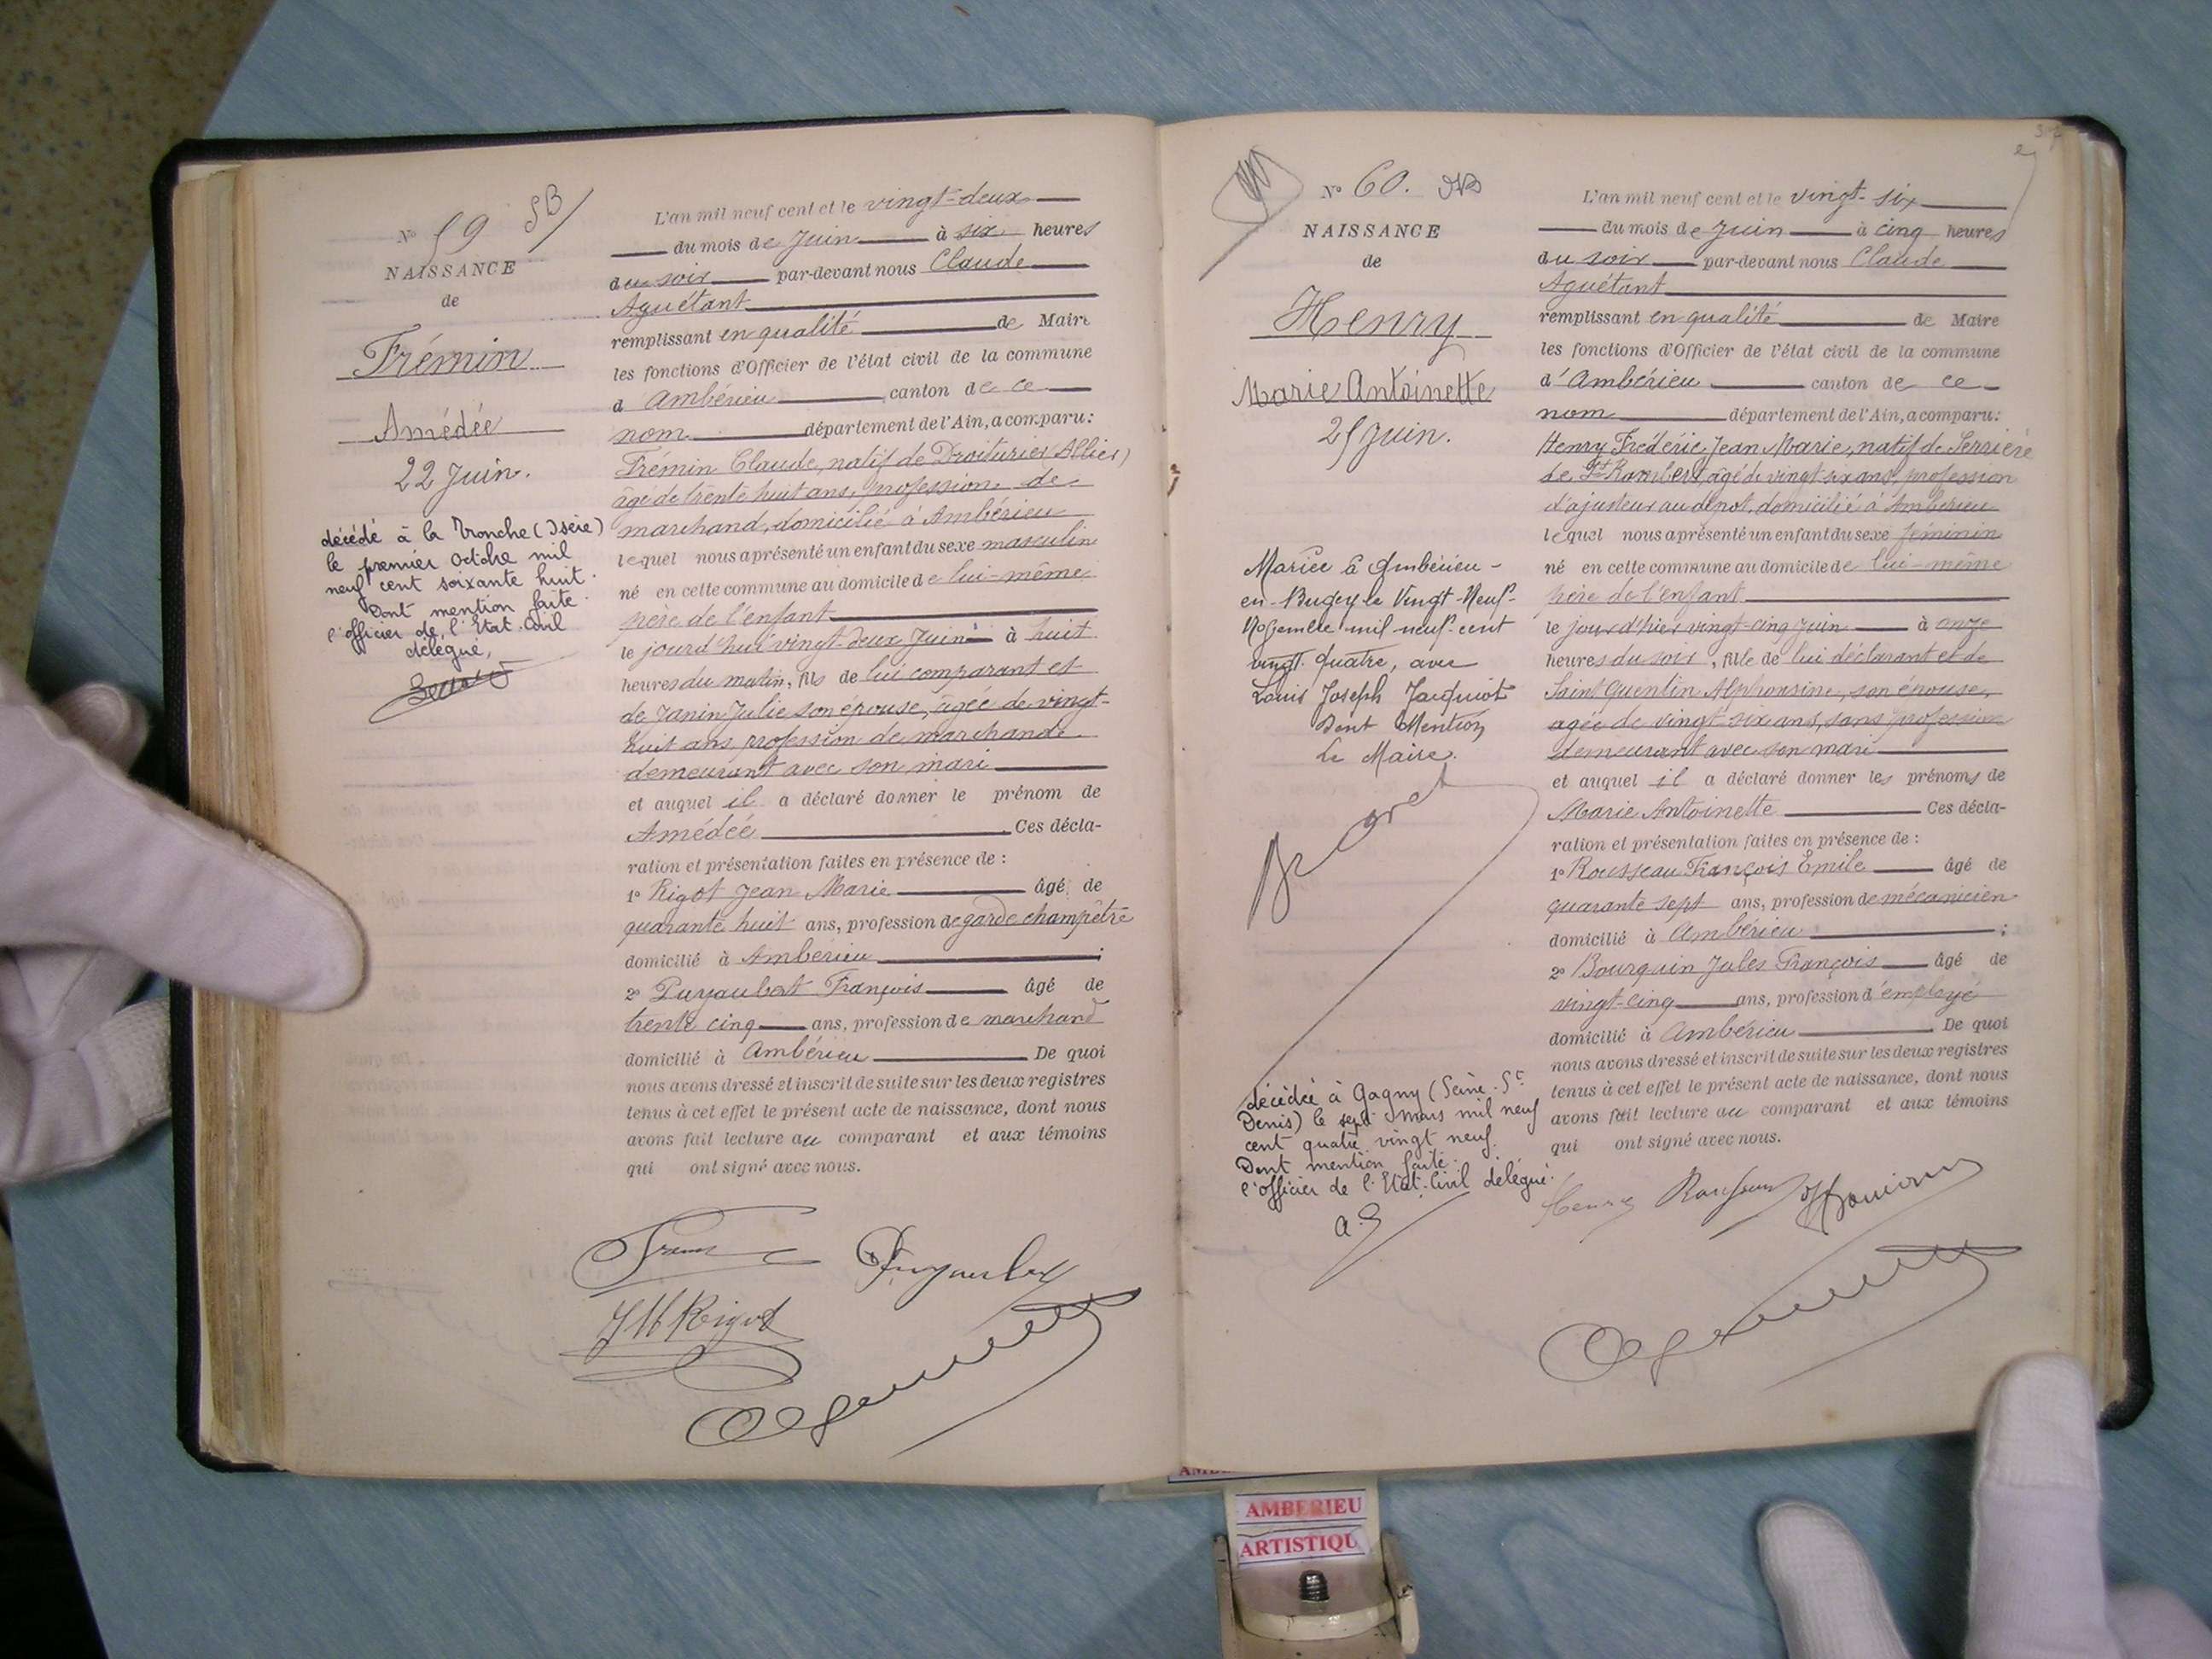 N° 59
NAISSANCE
de
Frémin
Amédée
22 Juin.
décédé à la Tronche (Isère)
le premier Octobre mil
neuf cent soixante huit.
Dont mention faite.
l'officier de l'Etat-Civil
délégué,
L'an mil neuf cent et le vingt-deux
du mois de Juin à six heures
du soir par-devant nous Claude
Aguétant
remplissant en qualité de Maire
les fonctions d'Officier de l'état civil de la commune
d'Ambérieu canton de ce
nom département de l'Ain, a comparu:
Frémin Claude, natif de Droiturier (Allier)
âgé de trente huit ans, profession de
marchand, domicilié à Ambérieu
lequel nous a présenté un enfant du sexe masculin
né en cette commune au domicile de lui-même
père de l'enfant
le jourd'hui vingt-deux Juin à huit
heures du matin, fils de lui comparant et
de Janin Julie son épouse, âgée de vingt-
huit ans, profession de marchande
demeurant avec son mari
et auquel il a déclaré donner le prénom de
Amédée Ces décla-
ration et présentation faites en présence de :
1° Rigot Jean Marie âgé de
quarante huit ans, profession de garde champêtre
domicilié à Ambérieu ;
2° Puyaubert François âgé de
trente cinq ans, profession de marchand
domicilié à Ambérieu De quoi
nous avons dressé et inscrit de suite sur les deux registres
tenus à cet effet le présent acte de naissance, dont nous
avons fait lecture au comparant et aux témoins
qui ont signé avec nous.
Puyaubert
JM Rigot
N° 60.
NAISSANCE
de
Henry
Marie Antoinette
25 Juin.
Mariée à Ambérieu-
en-Bugey le Vingt-Neuf-
Novembre mil neuf cent
vingt-quatre, avec
Louis Joseph Jacquiot
Dont Mention
Le Maire.
décédée à Gagny (Seine-St
Denis) le sept Mars mil neuf
cent quatre vingt neuf.
Dont mention faite.
l'officier de l'Etat-Civil délégué.
L'an mil neuf cent et le vingt-six
du mois de Juin à cinq heures
du soir par-devant nous Claude
Aguétant
remplissant en qualité de Maire
les fonctions d'Officier de l'état civil de la commune
d'Ambérieu canton de ce
nom département de l'Ain, a comparu:
Henry Frédéric Jean Marie, natif de Serrière
de St Rambert, âgé de vingt-six ans, profession
d'ajusteur au dépot, domicilié à Ambérieu
lequel nous a présenté un enfant du sexe féminin
né en cette commune au domicile de lui-même
père de l'enfant
le jour d'hier vingt-cinq Juin à onze
heures du soir, fille de lui déclarant et de
Saint Quentin Alphonsine, son épouse,
agée de vingt-six ans, sans profession
demeurant avec son mari
et auquel il a déclaré donner les prénoms de
Marie Antoinette Ces décla-
ration et présentation faites en présence de :
1° Rousseau François Emile âgé de
quarante sept ans, profession de mécanicien
domicilié à Ambérieu ;
2° Bourquin Jules François âgé de
vingt-cinq ans, profession d'employé
domicilié à Ambérieu De quoi
nous avons dressé et inscrit de suite sur les deux registres
tenus à cet effet le présent acte de naissance, dont nous
avons fait lecture au comparant et aux témoins
qui ont signé avec nous.
Henry
AMBERIEU
ARTISTIQU